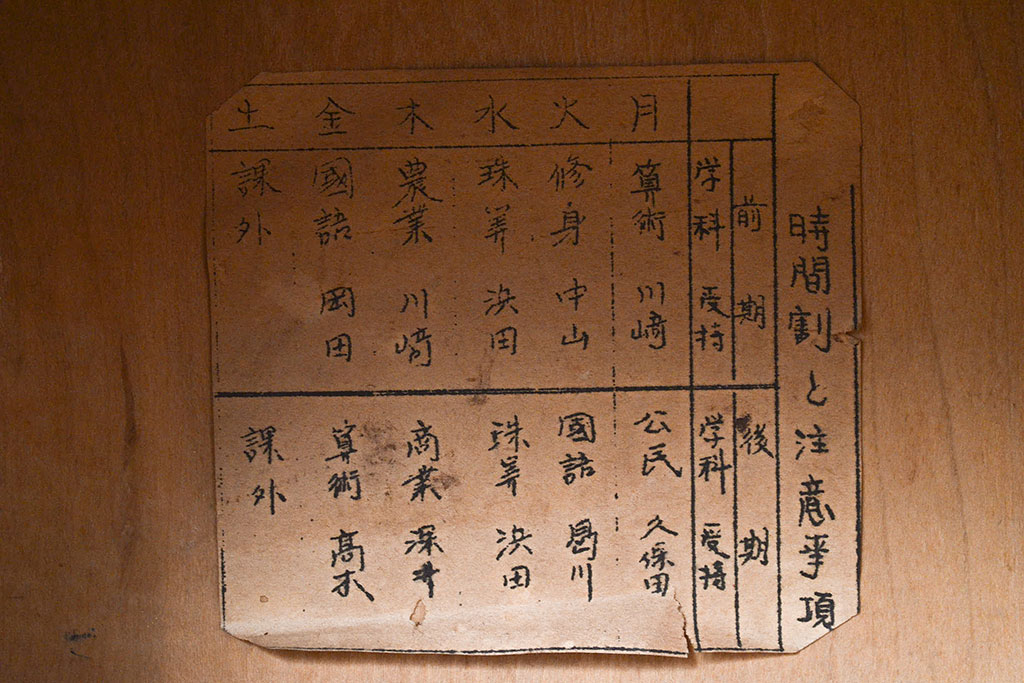 時間割と注意事項
前期
後期
学科 受持
学科 受持
月
算術 川﨑
公民 久保田
火
修身 中山
國語 島川
水
珠算 浜田
珠算 浜田
木
農業 川﨑
商業 深井
金
國語 岡田
算術 高木
土
課外
課外